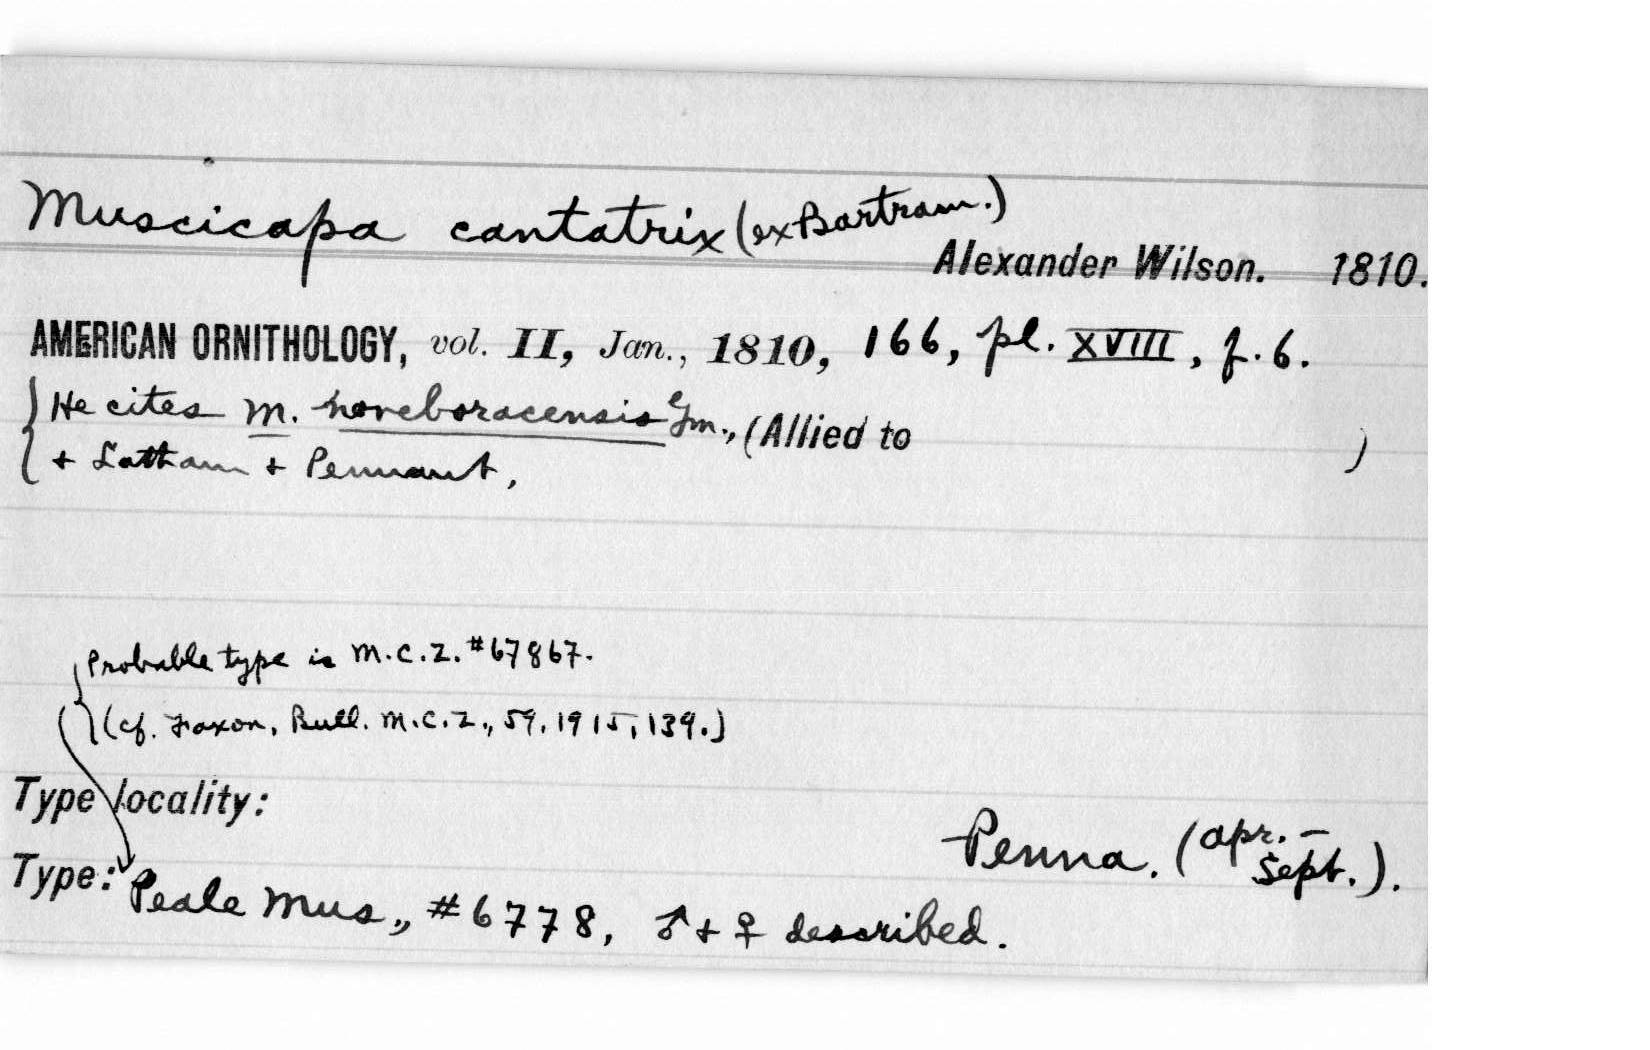 Muscicapa cantatrix (ex Bartram.)
Alexander Wilson. 1810.
AMERICAN ORNITHOLOGY, vol. II, Jan., 1810, 166, pl. XVIII, f. 6.
He cites M. noveboracensis Gm., (Allied to )
+ Latham + Pennant,
Probable type is M.C.Z. #67867.
(cf. Faxon, Bull. M.C.Z., 59, 1915, 139.)
Type locality:
Penna. (Apr. – Sept.).
Type: Peale Mus., #6778, ♂ + ♀ described.